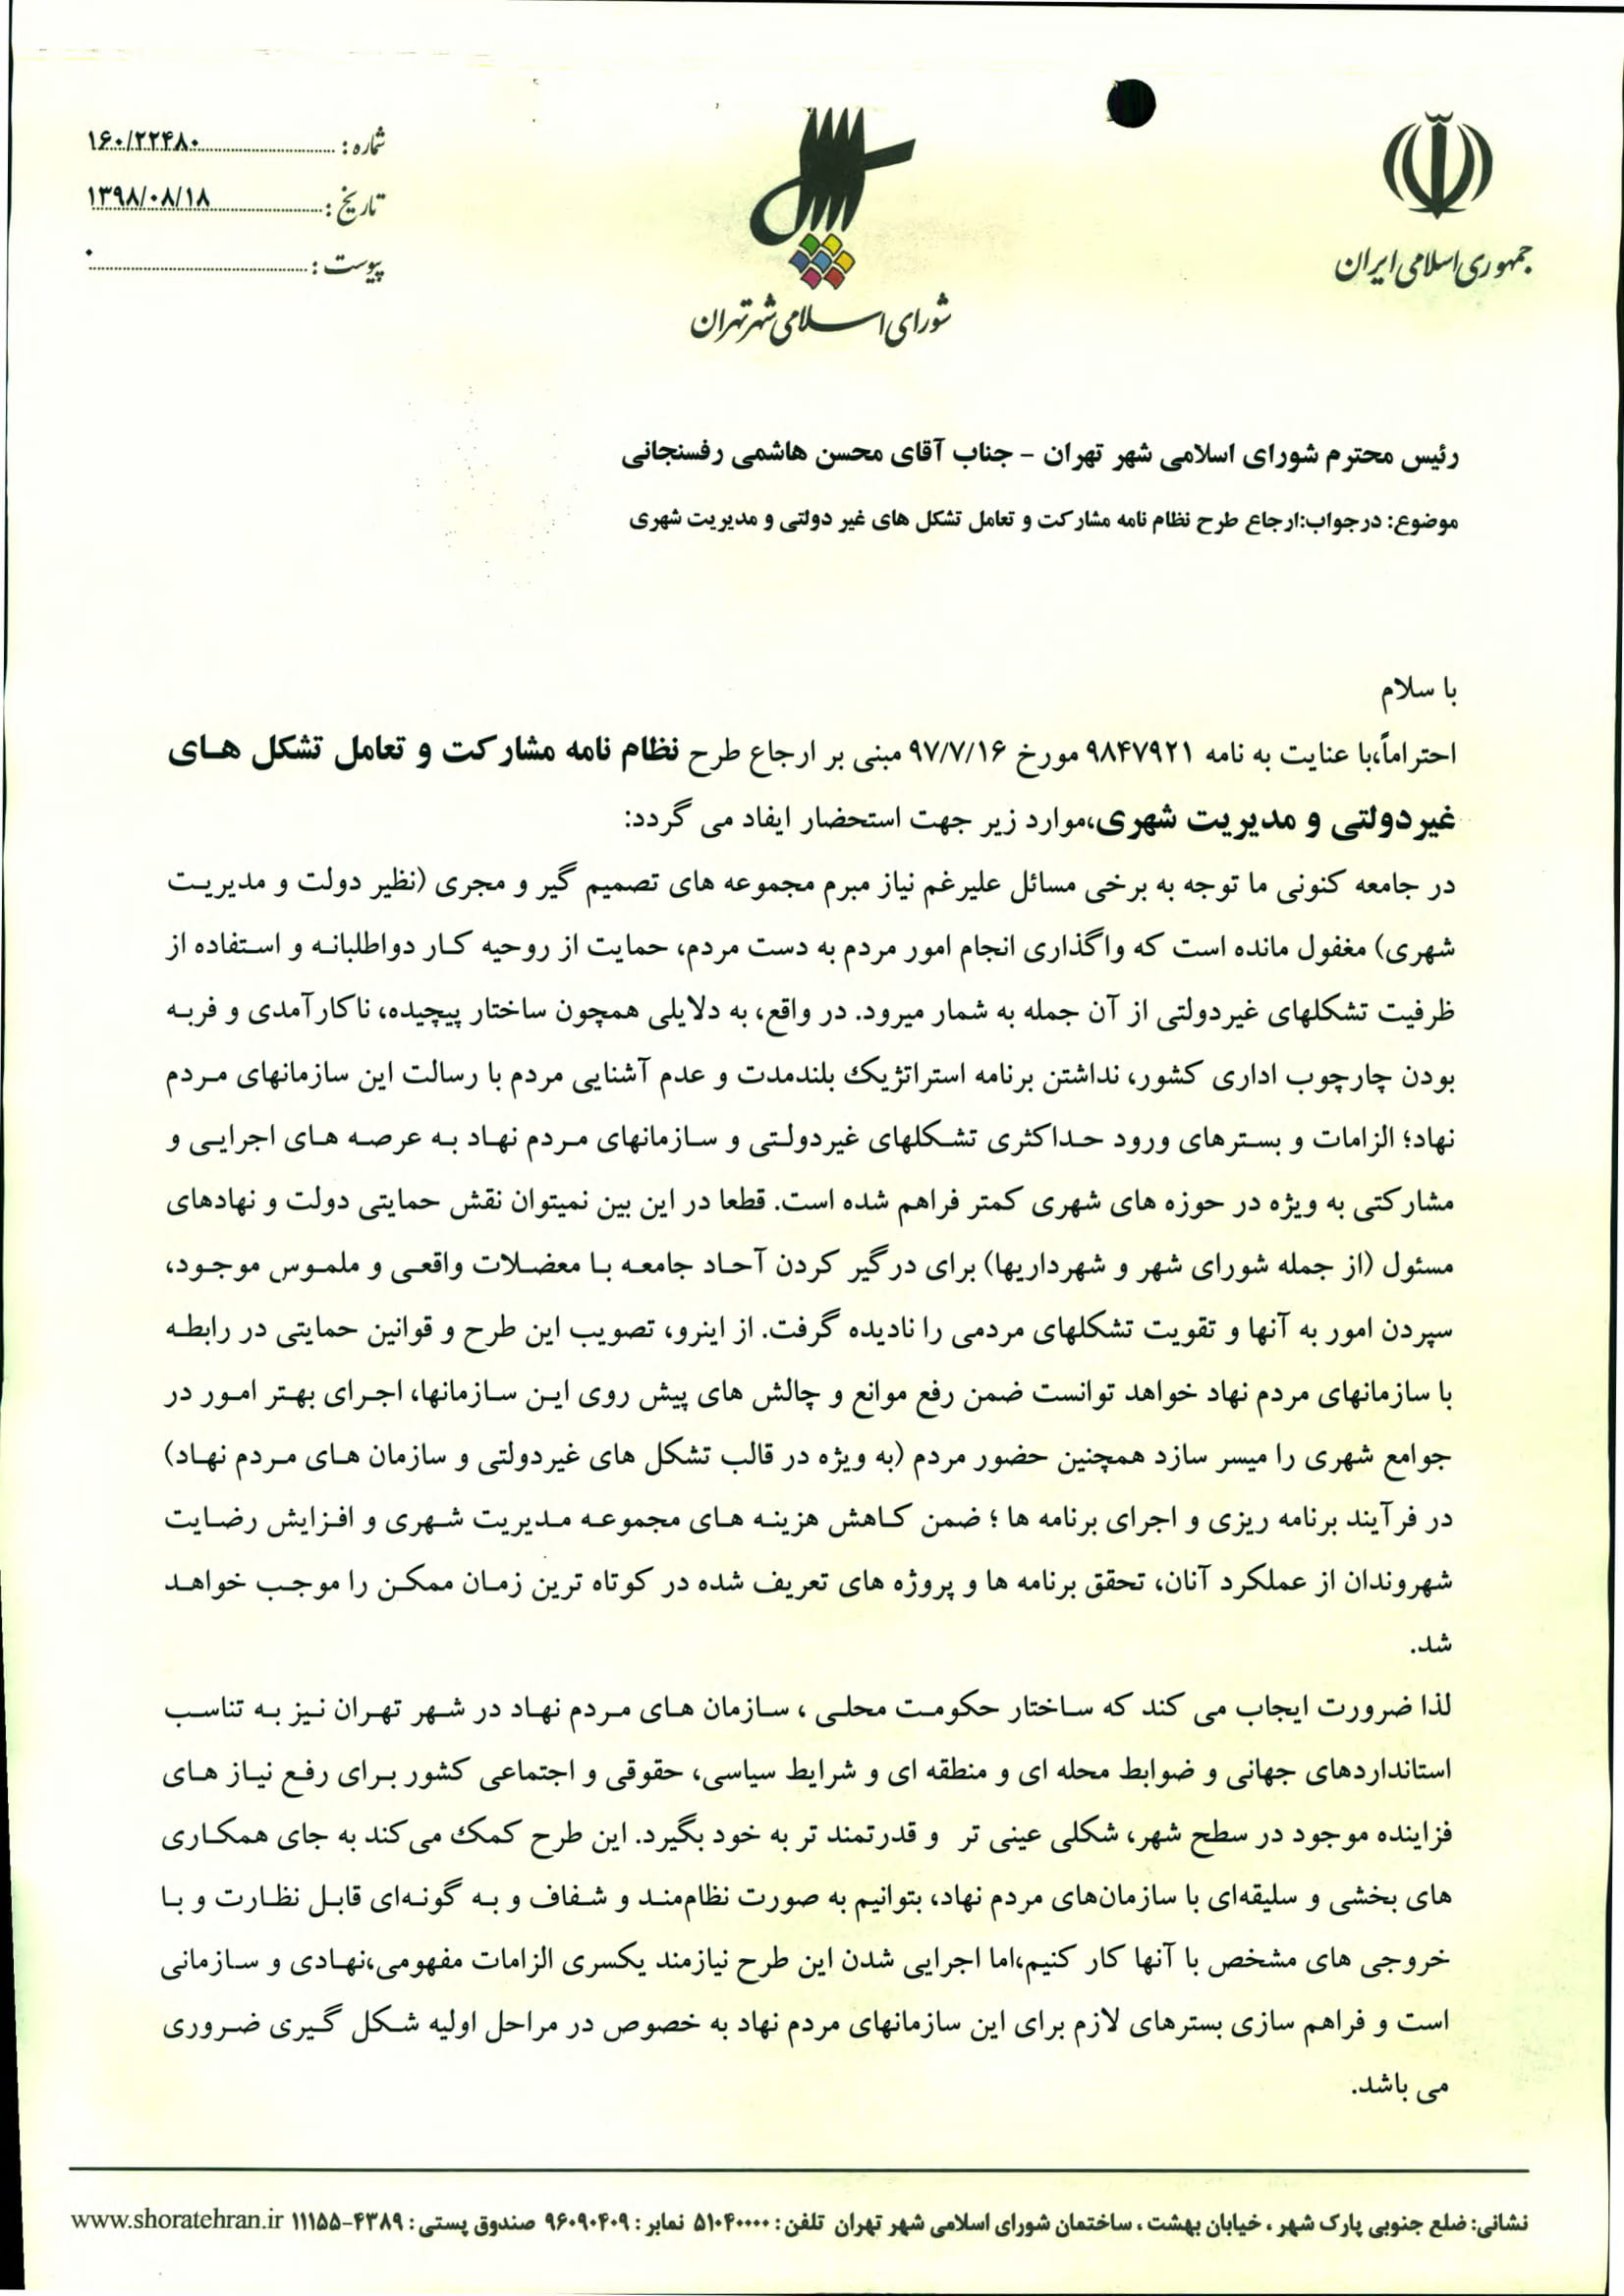 جمهوری اسلامی ایران
شورای اسلامی شهر تهران
شماره : ۱۶۰/۲۲۴۸۰
تاریخ : ۱۳۹۸/۰۸/۱۸
پیوست : ۰
رئیس محترم شورای اسلامی شهر تهران - جناب آقای محسن هاشمی رفسنجانی
موضوع: درجواب:ارجاع طرح نظام نامه مشارکت و تعامل تشکل های غیر دولتی و مدیریت شهری
با سلام
احتراماً،با عنایت به نامه ۹۸۴۷۹۲۱ مورخ ۹۷/۷/۱۶ مبنی بر ارجاع طرح نظام نامه مشارکت و تعامل تشکل های
غیردولتی و مدیریت شهری،موارد زیر جهت استحضار ایفاد می گردد:
در جامعه کنونی ما توجه به برخی مسائل علیرغم نیاز مبرم مجموعه های تصمیم گیر و مجری (نظیر دولت و مدیریت
شهری) مغفول مانده است که واگذاری انجام امور مردم به دست مردم، حمایت از روحیه کار دواطلبانه و استفاده از
ظرفیت تشکلهای غیردولتی از آن جمله به شمار میرود. در واقع، به دلایلی همچون ساختار پیچیده، ناکارآمدی و فربه
بودن چارچوب اداری کشور، نداشتن برنامه استراتژیک بلندمدت و عدم آشنایی مردم با رسالت این سازمانهای مردم
نهاد؛ الزامات و بسترهای ورود حداکثری تشکلهای غیردولتی و سازمانهای مردم نهاد به عرصه های اجرایی و
مشارکتی به ویژه در حوزه های شهری کمتر فراهم شده است. قطعا در این بین نمیتوان نقش حمایتی دولت و نهادهای
مسئول (از جمله شورای شهر و شهرداریها) برای درگیر کردن آحاد جامعه با معضلات واقعی و ملموس موجود،
سپردن امور به آنها و تقویت تشکلهای مردمی را نادیده گرفت. از اینرو، تصویب این طرح و قوانین حمایتی در رابطه
با سازمانهای مردم نهاد خواهد توانست ضمن رفع موانع و چالش های پیش روی این سازمانها، اجرای بهتر امور در
جوامع شهری را میسر سازد همچنین حضور مردم (به ویژه در قالب تشکل های غیردولتی و سازمان های مردم نهاد)
در فرآیند برنامه ریزی و اجرای برنامه ها ؛ ضمن کاهش هزینه های مجموعه مدیریت شهری و افزایش رضایت
شهروندان از عملکرد آنان، تحقق برنامه ها و پروژه های تعریف شده در کوتاه ترین زمان ممکن را موجب خواهد
شد.
لذا ضرورت ایجاب می کند که ساختار حکومت محلی ، سازمان های مردم نهاد در شهر تهران نیز به تناسب
استانداردهای جهانی و ضوابط محله ای و منطقه ای و شرایط سیاسی، حقوقی و اجتماعی کشور برای رفع نیاز های
فزاینده موجود در سطح شهر، شکلی عینی تر و قدرتمند تر به خود بگیرد. این طرح کمک می‌کند به جای همکاری
های بخشی و سلیقه‌ای با سازمان‌های مردم نهاد، بتوانیم به صورت نظام‌مند و شفاف و به گونه‌ای قابل نظارت و با
خروجی های مشخص با آنها کار کنیم،اما اجرایی شدن این طرح نیازمند یکسری الزامات مفهومی،نهادی و سازمانی
است و فراهم سازی بسترهای لازم برای این سازمانهای مردم نهاد به خصوص در مراحل اولیه شکل گیری ضروری
می باشد.
نشانی: ضلع جنوبی پارک شهر ، خیابان بهشت ، ساختمان شورای اسلامی شهر تهران تلفن : ۵۱۰۴۰۰۰۰ نمابر : ۹۶۰۹۰۴۰۹ صندوق پستی : ۴۳۸۹-۱۱۱۵۵ www.shoratehran.ir